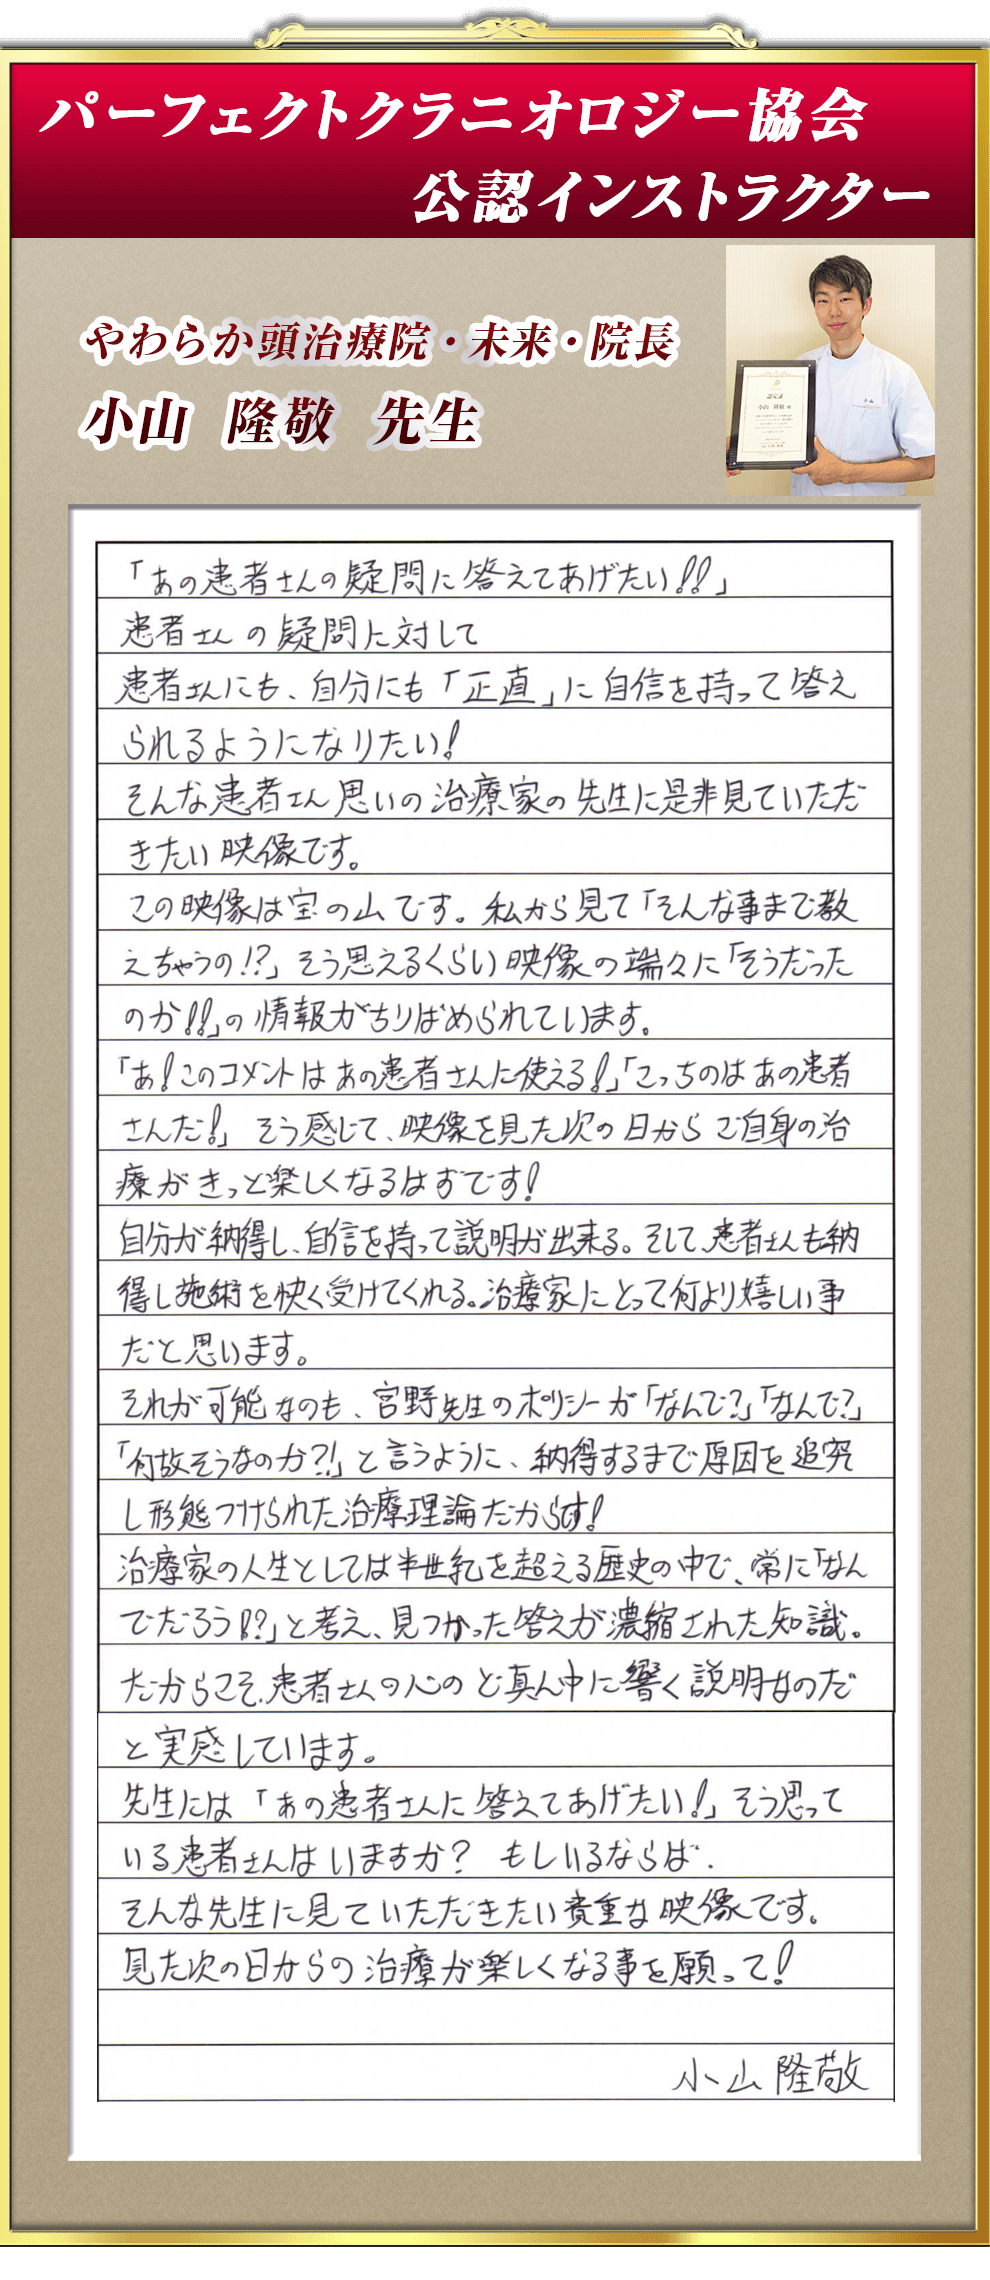 パーフェクトクラニオロジー協会
公認インストラクター
やわらか頭治療院・未来・院長
小山 隆敬 先生
認定証
小山 隆敬
「あの患者さんの疑問に答えてあげたい!!」
患者さんの疑問に対して
患者さんにも、自分にも「正直」に自信を持って答え
られるようになりたい!
そんな患者さん思いの治療家の先生に是非見ていただ
きたい映像です。
この映像は宝の山です。私から見て「そんな事まで教
えちゃうの!?」そう思えるくらい映像の端々に「そうだった
のか!!」の情報がちりばめられています。
「あ!このコメントはあの患者さんに使える!」「こっちのはあの患者
さんだ!」そう感じて、映像を見た次の日からご自身の治
療がきっと楽しくなるはずです!
自分が納得し、自信を持って説明が出来る。そして、患者さんも納
得し施術を快く受けてくれる。治療家にとって何より嬉しい事
だと思います。
それが可能なのも、宮野先生のポリシーが「なんで?」「なんで?」
「何故そうなのか?!」と言うように、納得するまで原因を追究
し形態づけられた治療理論だからす!
治療家の人生としては半世紀を超える歴史の中で、常に「なん
でだろう!?」と考え、見つかった答えが濃縮された知識。
だからこそ、患者さんの心のど真ん中に響く説明なのだ
と実感しています。
先生には「あの患者さんに答えてあげたい!」そう思って
いる患者さんはいますか? もしいるならば、
そんな先生に見ていただきたい貴重な映像です。
見た次の日からの治療が楽しくなる事を願って!
小山隆敬